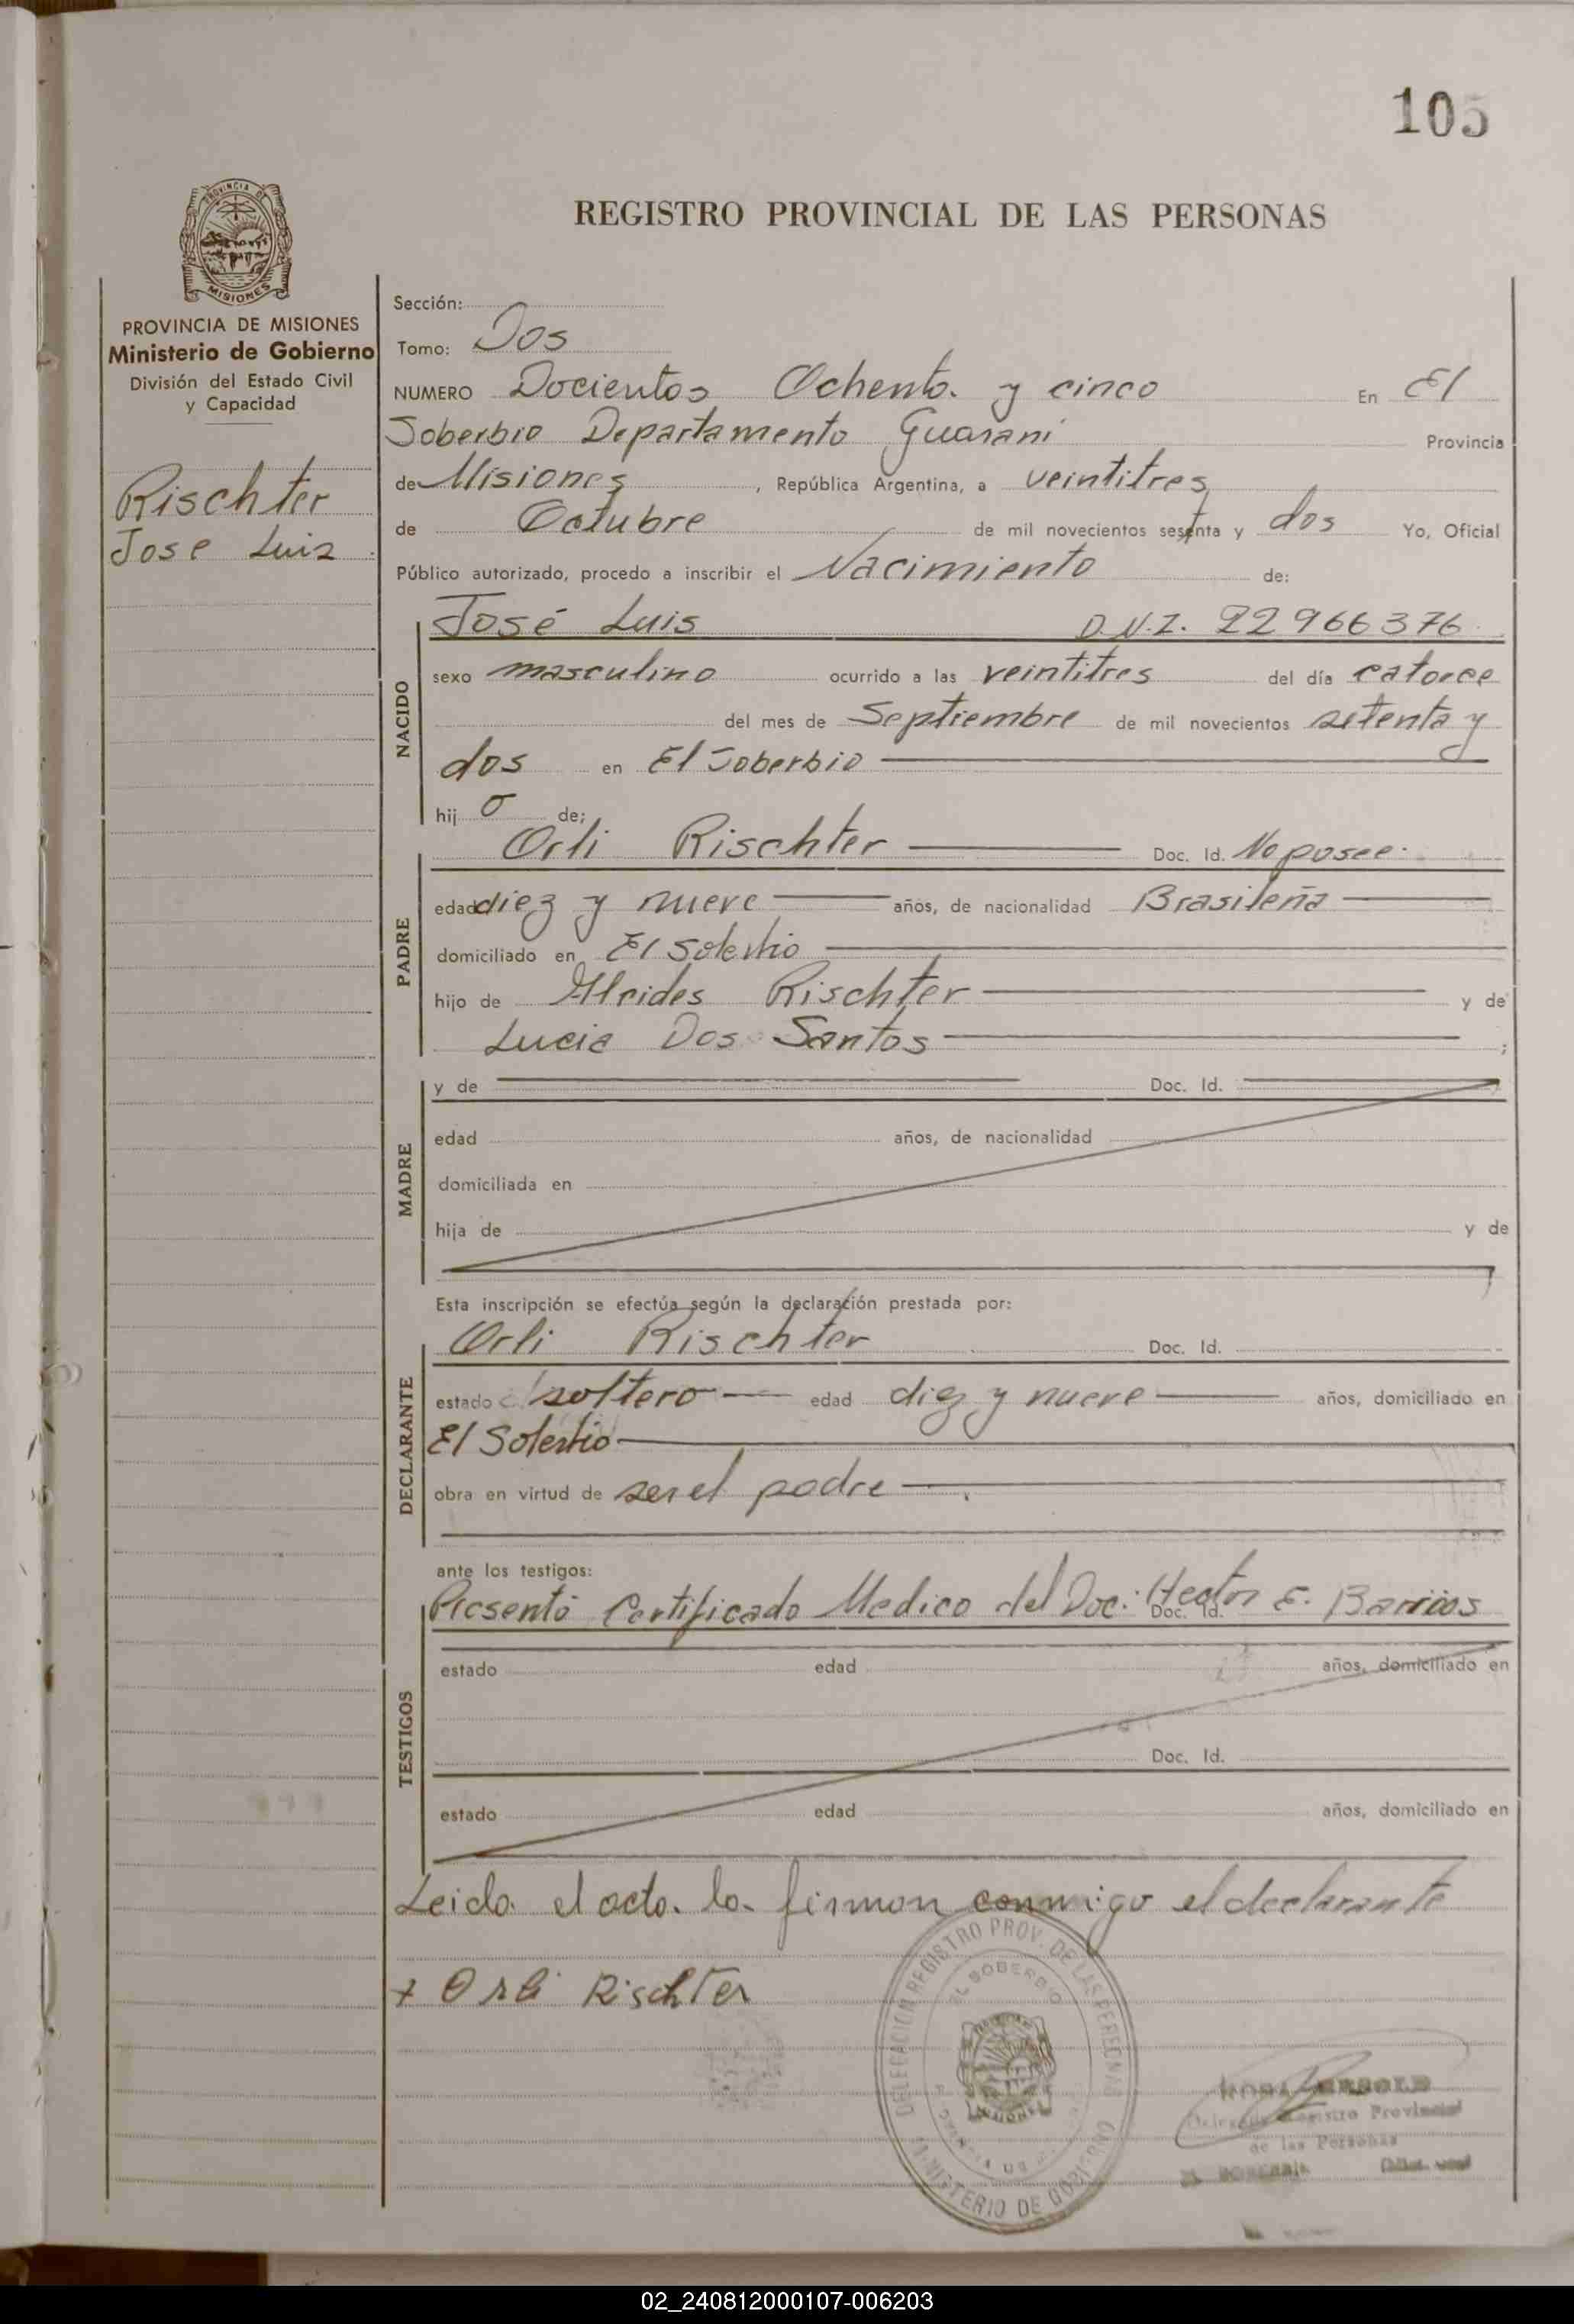 105
PROVINCIA DE
MISIONES
REGISTRO PROVINCIAL DE LAS PERSONAS
PROVINCIA DE MISIONES
Ministerio de Gobierno
División del Estado Civil
y Capacidad
Rischter
Jose Luis
Sección:
Tomo: Dos
NUMERO Docientos Ochenta y cinco En El
Soberbio Departamento Guarani Provincia
de Misiones, República Argentina, a veintitres
de Octubre de mil novecientos sesenta y dos Yo, Oficial
Público autorizado, procedo a inscribir el Nacimiento de:
NACIDO
José Luis D.N.I. 22966376
sexo masculino ocurrido a las veintitres del día catorce
del mes de Septiembre de mil novecientos setenta y
dos en El Soberbio
hij o de;
PADRE
Orli Rischter Doc. Id. No posee.
edad diez y nueve años, de nacionalidad Brasileña
domiciliado en El Soberbio
hijo de Alcides Rischter y de
Lucia Dos Santos ;
MADRE
y de Doc. Id.
edad años, de nacionalidad
domiciliada en
hija de y de
Esta inscripción se efectúa según la declaración prestada por:
DECLARANTE
Orli Rischter Doc. Id.
estado c/ soltero edad diez y nueve años, domiciliado en
El Soberbio
obra en virtud de ser el padre
ante los testigos:
TESTIGOS
Presentó Certificado Medico del Doc. Hector E. Barrios
Doc. Id.
estado edad años, domiciliado en
Doc. Id.
estado edad años, domiciliado en
Leida el acta la firman conmigo el declarante
+ Orli Rischter
DELEGACION REGISTRO PROV. DE LAS PERSONAS
EL SOBERBIO
MISIONES
MINISTERIO DE GOBIERNO
Registro Provincial
de las Personas
EL SOBERBIO
02_240812000107-006203